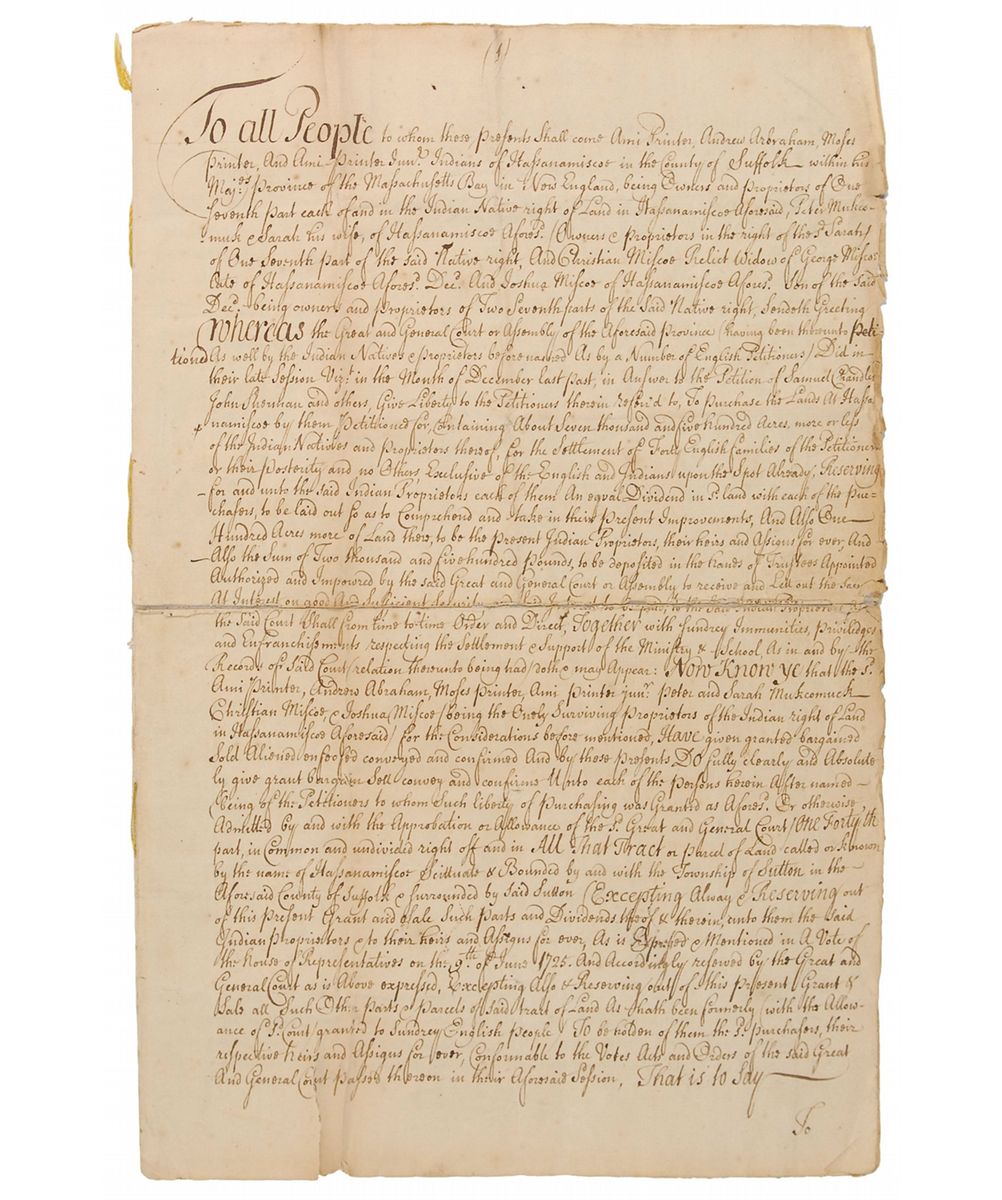 (1)
To all People to whom these presents Shall come Ami Printer, Andrew Abraham, Moses
Printer, And Ami Printer Junr. Indians of Hassanamiscoe in the County of Suffolk within his
Majes. Province of the Massachusetts Bay in New England, being Owners and proprietors of One
seventh part each of and in the Indian Native right of Land in Hassanamiscoe Aforesaid, Peter Muckco-
muck & Sarah his wife, of Hassanamiscoe Afores.d (Owners & proprietors in the right of the s.d Sarah)
of One Seventh part of the said Native right, And Christian Miscoe Relict Widow of George Misco
late of Hassanamiscoe Afores.d Dec.d And Joshua Miscoe of Hassanamiscoe Afores.d Son of the Said
Dec.d being owners and Proprietors of Two Sevenths parts of the Said Native right, Sendeth Greeting
Whereas the Great and General Court or Assembly of the Aforesaid Province (having been thereunto peti-
tioned As well by the Indian Natives & Proprietors before named As by a Number of English Petitioners) Did in
their late Session Viz.t in the Month of December last past, in Answer to the Petition of Samuel Chandler
John Sherman and others, Give Liberty to the Petitioners therein refer'd to, To Purchase the Lands At Hassa
namiscoe by them Petitioned for, Containing About Seven thousand and five hundred Acres, more or less
of the Indian Natives and Proprietors thereof, for the Settlement of Forty English families of the Petitioners
or their Posterity and no Others, Exclusive of the English and Indians upon the Spot Already, Reserving
for and unto the Said Indian Proprietors each of them An equal Dividend in s.d land with each of the Pur-
chasers, to be laid out so as to Comprehend and take in their Present Improvements, And Also One
Hundred Acres more of Land there, to be the present Indian Proprietors, their heirs and Assigns for ever, And
Also the Sum of Two thousand and five hundred pounds, to be deposited in the hands of Trustees Appointed
Authorized and Impowred by the said Great and General Court or Assembly to receive and Let out the Same
At Interest on good And Sufficient Security and Said Interest to be paid to the Said Indian Proprietors As
the Said Court Shall from time to time Order and Direct, Together with sundrey Immunities, Priviledges
and Enfranchisments respecting the Settlement & Support of the Ministry & School, As in and by the
Records of Said Court (relation thereunto being had) doth & may Appear: Now Know ye that the s.d
Ami Printer, Andrew Abraham, Moses Printer, Ami Printer junr. Peter and Sarah Muckcomuck
Christian Miscoe, & Joshua Miscoe (being the Onely Surviving Proprietors of the Indian right of Land
in Hassanamiscoe Aforesaid) for the Considerations before mentioned, Have given granted bargained
Sold Aliened enfeofed conveyed and confirmed And by these Presents DO fully clearly and Absolute-
ly give grant bargain Sell convey and confirme Unto each of the persons herein After named
(being of the Petitioners to whom Such liberty of purchasing was Granted as Afores.d Or otherwise
Admitted by and with the Approbation or Allowance of the s.d Great and General Court) One Fortyeth
part, in Common and undivided right off and in All That Tract or parcel of Land called or known
by the name of Hassanamiscoe Scittuate & Bounded by and with the Township of Sutton in the
Aforesaid County of Suffolk & Surrounded by Said Sutton (Excepting Alway & Reserving out
of this Present Grant and Sale Such Parts and Dividends thereof & therein, unto them the Said
Indian Proprietors & to their heirs and Assigns for ever, As is Expressed & Mentioned in A Vote of
the house of Representatives on the 9th of June 1725. And Accordingly reserved by the Great and
General Court as is Above expressed, Excepting Also & Reserving out of this Present Grant &
Sale all Such Other Parts & parcels of Said tract of Land As hath been formerly (with the Allow-
ance of s.d Court) granted to Sundrey English people) To be holden of them the s.d Purchasers, their
respective heirs and Assigns for ever, Conformable to the Votes Acts and Orders of the said Great
And General Court passed thereon in their Aforesaid Session, That is to Say
To